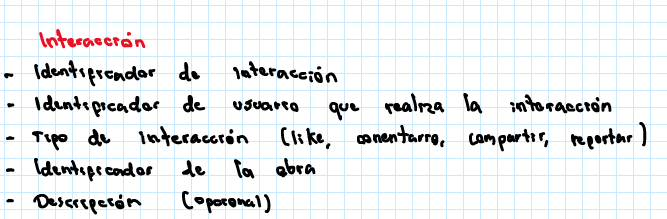 Interacción
- Identificador de interacción
- Identificador de usuario que realiza la interacción
- Tipo de interacción (like, comentario, compartir, reportar)
- Identificador de la obra
- Descripción (opcional)